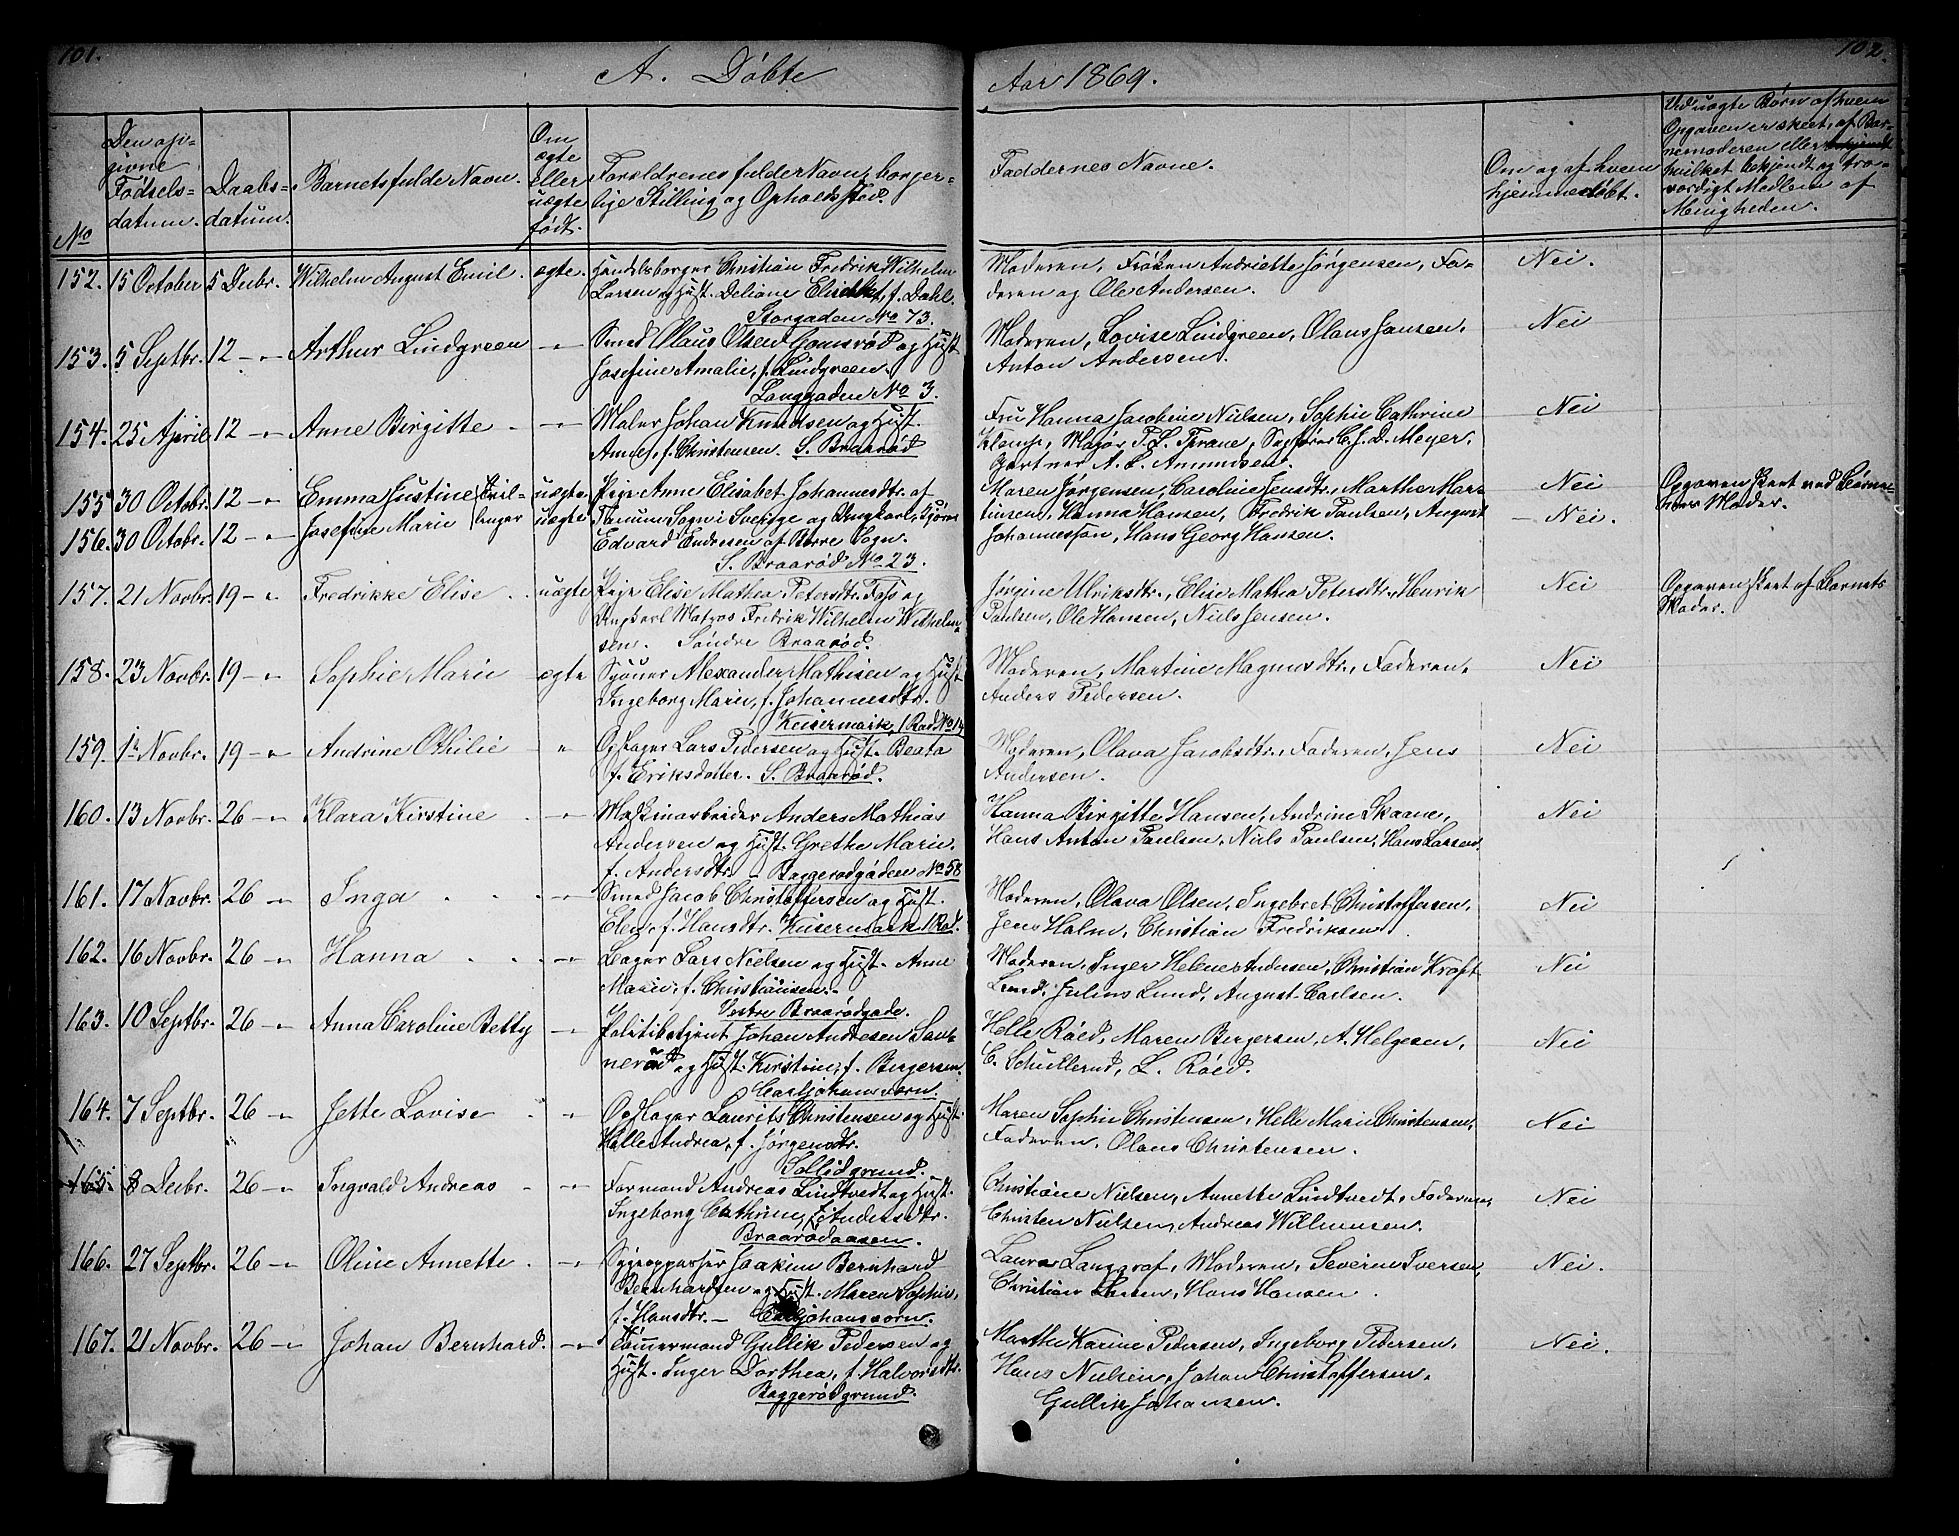 101.
A. Døbte
Aar 1869.
102.
No
Den op-
givne
Fødsels-
datum.
Daabs-
datum.
Barnets fulde Navn.
Om
ægte
eller
uægte
født.
Forældrenes fulde Navn, borger-
lige Stilling og Opholdssted.
Faddernes Navne.
Om og af hvem
hjemmedøbt.
Ved uægte Børn af hvem
Opgaven er skeet, af Bar-
nemoderen eller
hvilket bekjendt og tro-
værdigt Medlem af
Menigheden.
152. 15 October 5 Decbr. Wilhelm August Emil. ægte. Handelsborger Christian Fredrik Wilhelm
Larsen og Hust. Deliane Elisabet, f. Dahl.
Storgaden No 73.
Moderen, Frøken Andriette Jørgensen, Fa-
deren og Ole Andersen.
Nei.
153. 5 Septbr. 12 -"- Arthur Lindgreen -"- Smed Olaus Olsen Gonsrød og Hust
Josefine Amalie, f. Lindgreen.
Langgaden No 3.
Moderen, Lovise Lindgreen, Olaus Jansen,
Anton Andersen.
Nei
154. 25 April 12 -"- Anne Birgitte -"- Maler Johan Knudsen og Hust.
Anne, f. Christensen. S. Braarød
Fru Hanna Jacobine Nielsen, Sophie Cathrine
Klemp, Major P. L. Thrane, Sagfører C. J. D. Meyer,
Gartner A. L. Amundsen.
Nei
155 30 Octobr. 12 -"- Emma Justine (Tvil- uægte. Pige Anne Elisabet Johannesdtr. af
156. 30 Octobr. 12 -"- Josefine Marie (linger uægte Tanum Sogn i Sverige og Ungkarl, Kjører
Edvard Andresen af Borre Sogn.
S. Braarød No 23.
Maren Jørgensen, Caroline Jensdtr., Marthe Mar-
tinsen, Hanna Hansen, Fredrik Paulsen, August
Johannesson, Hans Georg Hansen.
Nei
- Nei.
Opgaven skeet ved Børne-
nes Moder.
157. 21 Novbr. 19 -"- Fredrikke Elise. uægte Pige Elise Mathea Petersdtr. Fyss og
Ungkarl Matros Fredrik Wilhelm Wilhelm-
sen. Søndre Braarød.
Jørgine Ulriksdtr., Elise Mathea Petersdtr., Henrik
Paulsen, Ole Hansen, Niels Jensen.
Nei
Opgaven skeet af Barnets
Moder.
158. 23 Novbr. 19 -"- Sophie Marie ægte Alexander Mathisen og Hust
Ingeborg Marie, f. Johannesdtr.
Keisermark, 1 Rad No 14
Moderen, Martine Magnusdtr., Faderen,
Anders Pedersen.
Nei
159. 1ste Novbr. 19 -"- Andrine Othilie " Opsager Lars Pedersen og Hust. Beata
f. Eriksdatter. S. Braarød.
Moderen, Olava Jacobsdtr., Faderen, Jens
Andersen.
Nei
160. 13 Novbr. 26 -"- Klara Kirstine -"- Maskinarbeider Anders Mathias
Andersen og Hust. Grethe Marie,
f. Andersdtr. - Baggerødgaden No 58
Hanna Birgitte Hansen, Andrine Skaane,
Hans Anton Paulsen, Niels Paulsen, Hans Larsen.
Nei
161. 17 Novbr. 26 -"- Inga -"- Smed Jacob Christoffersen og Hust.
Elen, f. Hansdtr. Keisermark 1 Rad.
Moderen, Olava Olsen, Ingebret Christoffersen,
Jens Holm, Christian Fredriksen.
Nei
162. 16 Novbr. 26 -"- Hanna -"- Bager Lars Nielsen og Hust. Anne
Marie, f. Christiansen.
Vestre Braarødgade.
Moderen, Inger Helene Andersen, Christian Kroft
Lund, Julius Lund, August Carlsen.
Nei
163. 10 Septbr. 26 -"- Anna Caroline Betty -"- Politibetjent Johan Andresen San-
nerød og Hust. Kirstine, f. Bergersen.
Carljohansværn.
Helle Røed, Maren Bergersen, A. Helgesen,
C. Schullerud, L. Røed.
Nei
164. 7 Septbr. 26 -"- Jette Lovise " Opsager Laurits Christensen og Hust.
Helle Andrea, f. Jørgensdtr.
Sollidgrund.
Maren Sophie Christensen, Helle Marie Christensen,
Faderen, Olaus Christensen.
Nei
165. 8 Decbr. 26 -"- Ingvald Andreas -"- Formand Andreas Lindtvedt og Hust.
Ingeborg Cathrine, f. Andersdtr.
Braarødaasen.
Christiane Nielsen, Annette Lindtvedt, Faderen,
Christen Nielsen, Andreas Willumsen.
Nei
166. 27 Septbr. 26 -"- Oline Annette -"- Sygeoppasser Joakim Bernhard
Bernhardsen og Hust. Maren Sophie,
f. Hansdtr. - Carljohansværn.
Laura Langgraf, Moderen, Severine Iversen,
Christian Larsen, Hans Hansen.
Nei.
167. 21 Novbr. 26 -"- Johan Bernhard. -"- Tømmermand Gullik Pedersen og
Hust. Inger Dorthea, f. Halvorsdtr.
Baggerødgrund.
Marthe Karine Pedersen, Ingeborg Pedersen,
Hans Nielsen, Johan Christoffersen,
Gullik Johansen.
Nei.